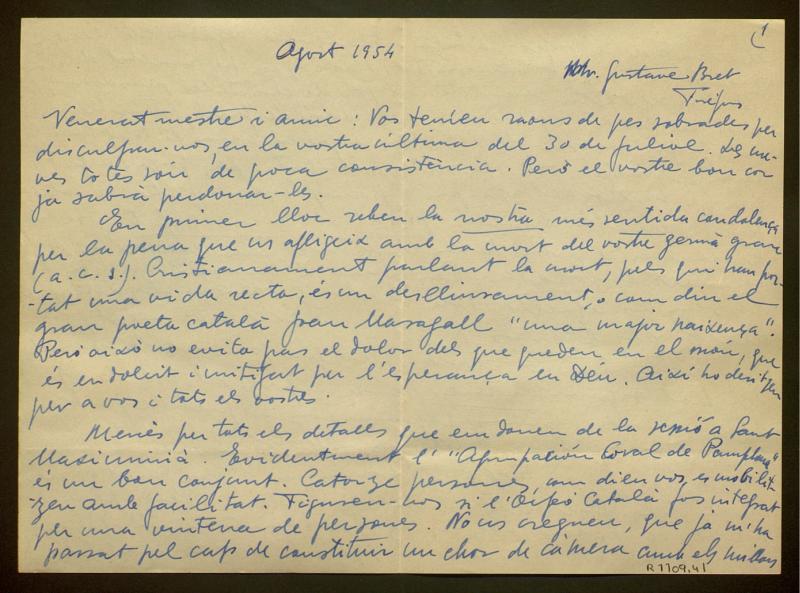 1
Agost 1954
Mr. Gustave Bret
Fréjus
Venerat mestre i amic: Vos teníeu raons de pes sobrades per
disculpar-vos, en la vostra última del 30 de Juliol. Les me-
ves totes són de poca consistència. Però el vostre bon cor
ja sabrà perdonar-les.
En primer lloc reben la nostra més sentida condolença
per la pena que us afligeix amb la mort del vostre germà gran
(a.c.s.). Cristianament parlant la mort, pels qui han por-
tat una vida recta, és un deslliurament, o com diu el
gran poeta català Joan Maragall "una major naixença".
Però això no evita pas el dolor dels que queden, en el món, que
és endolcit i mitigat per l'esperança en Déu. Així ho desitgem
per a vos i tots els vostres.
Mercès per tots els detalls que em doneu de la sessió a Sant
Maximinià. Evidentment l'"Agrupación Coral de Pamplona"
és un bon conjunt. Catorze persones, com dieu vos, es mobilit-
zen amb facilitat. Figureu-vos si l'Orfeó Català fos integrat
per una vintena de persones. No us cregueu, que ja m'ha
passat pel cap de constituir un chor de càmera amb els millors
R 1109,41